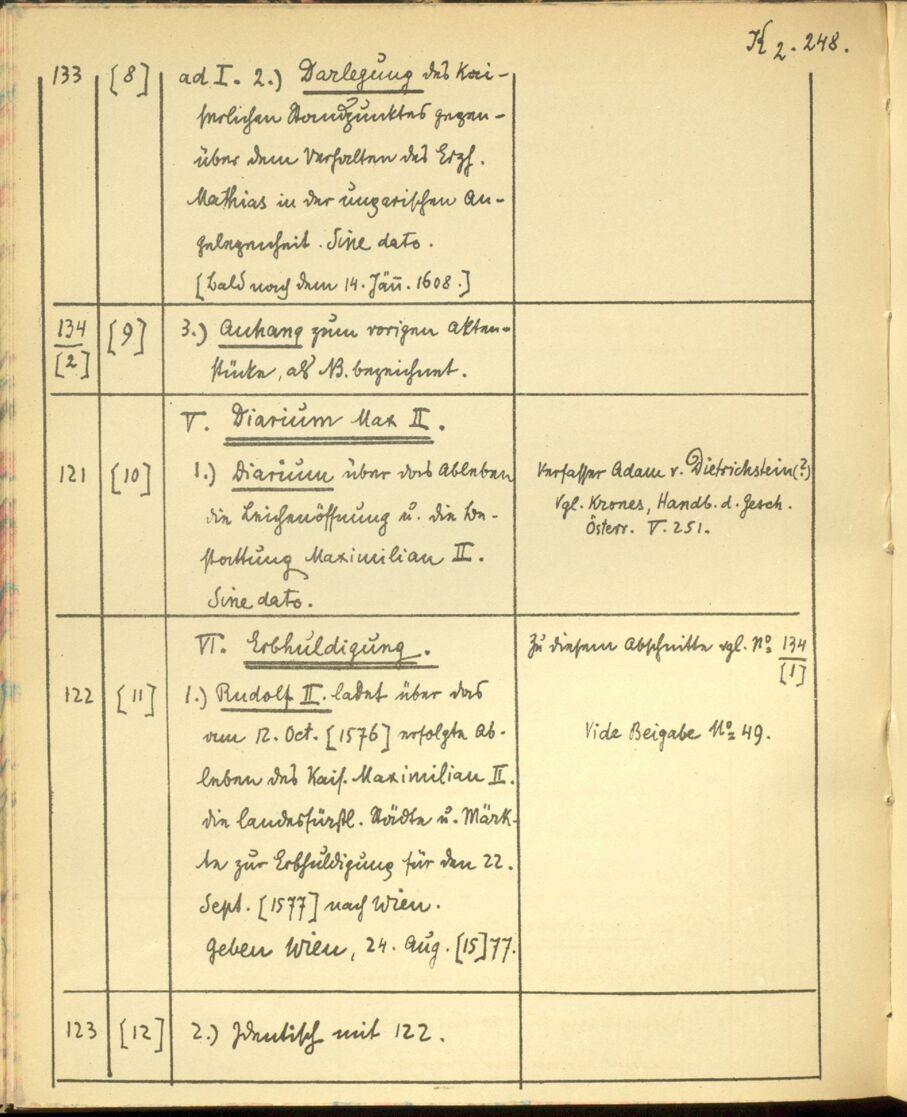 K 2. 248.
133 [8] ad I. 2.) Darlegung des Kai-
serlichen Standpunktes gegen-
über dem Verhalten des Erzh.
Mathias in der ungarischen An-
gelegenheit. Sine dato.
[Bald nach dem 14. Jän̄. 1608.]
134 [9] 3.) Anhang zum vorigen Akten-
[2] stücke, als NB. bezeichnet.
V. Diarium Max II.
121 [10] 1.) Diarium über das Ableben
die Leichenöffnung u. die Be-
stattung Maximilian II.
Sine dato.
Verfasser Adam v. Dietrichstein(?)
Vgl. Krones, Handb. d. Gesch.
Österr. V. 251.
VI. Erbhuldigung.
Zu diesem Abschnitte vgl. No 134
[1]
122 [11] 1.) Rudolf II. ladet über das
am 12. Oct. [1576] erfolgte Ab-
leben des Kais. Maximilian II.
die landesfürstl. Städte u. Märk-
te zur Erbhuldigung für den 22.
Sept. [1577] nach Wien.
Geben Wien, 24. Aug. [15]77.
Vide Beigabe No 49.
123 [12] 2.) Identisch mit 122.